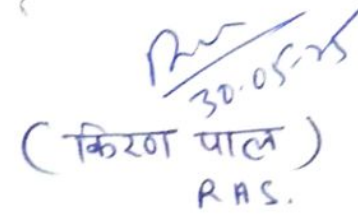 30.05.25
( किरण पाल )
RAS.